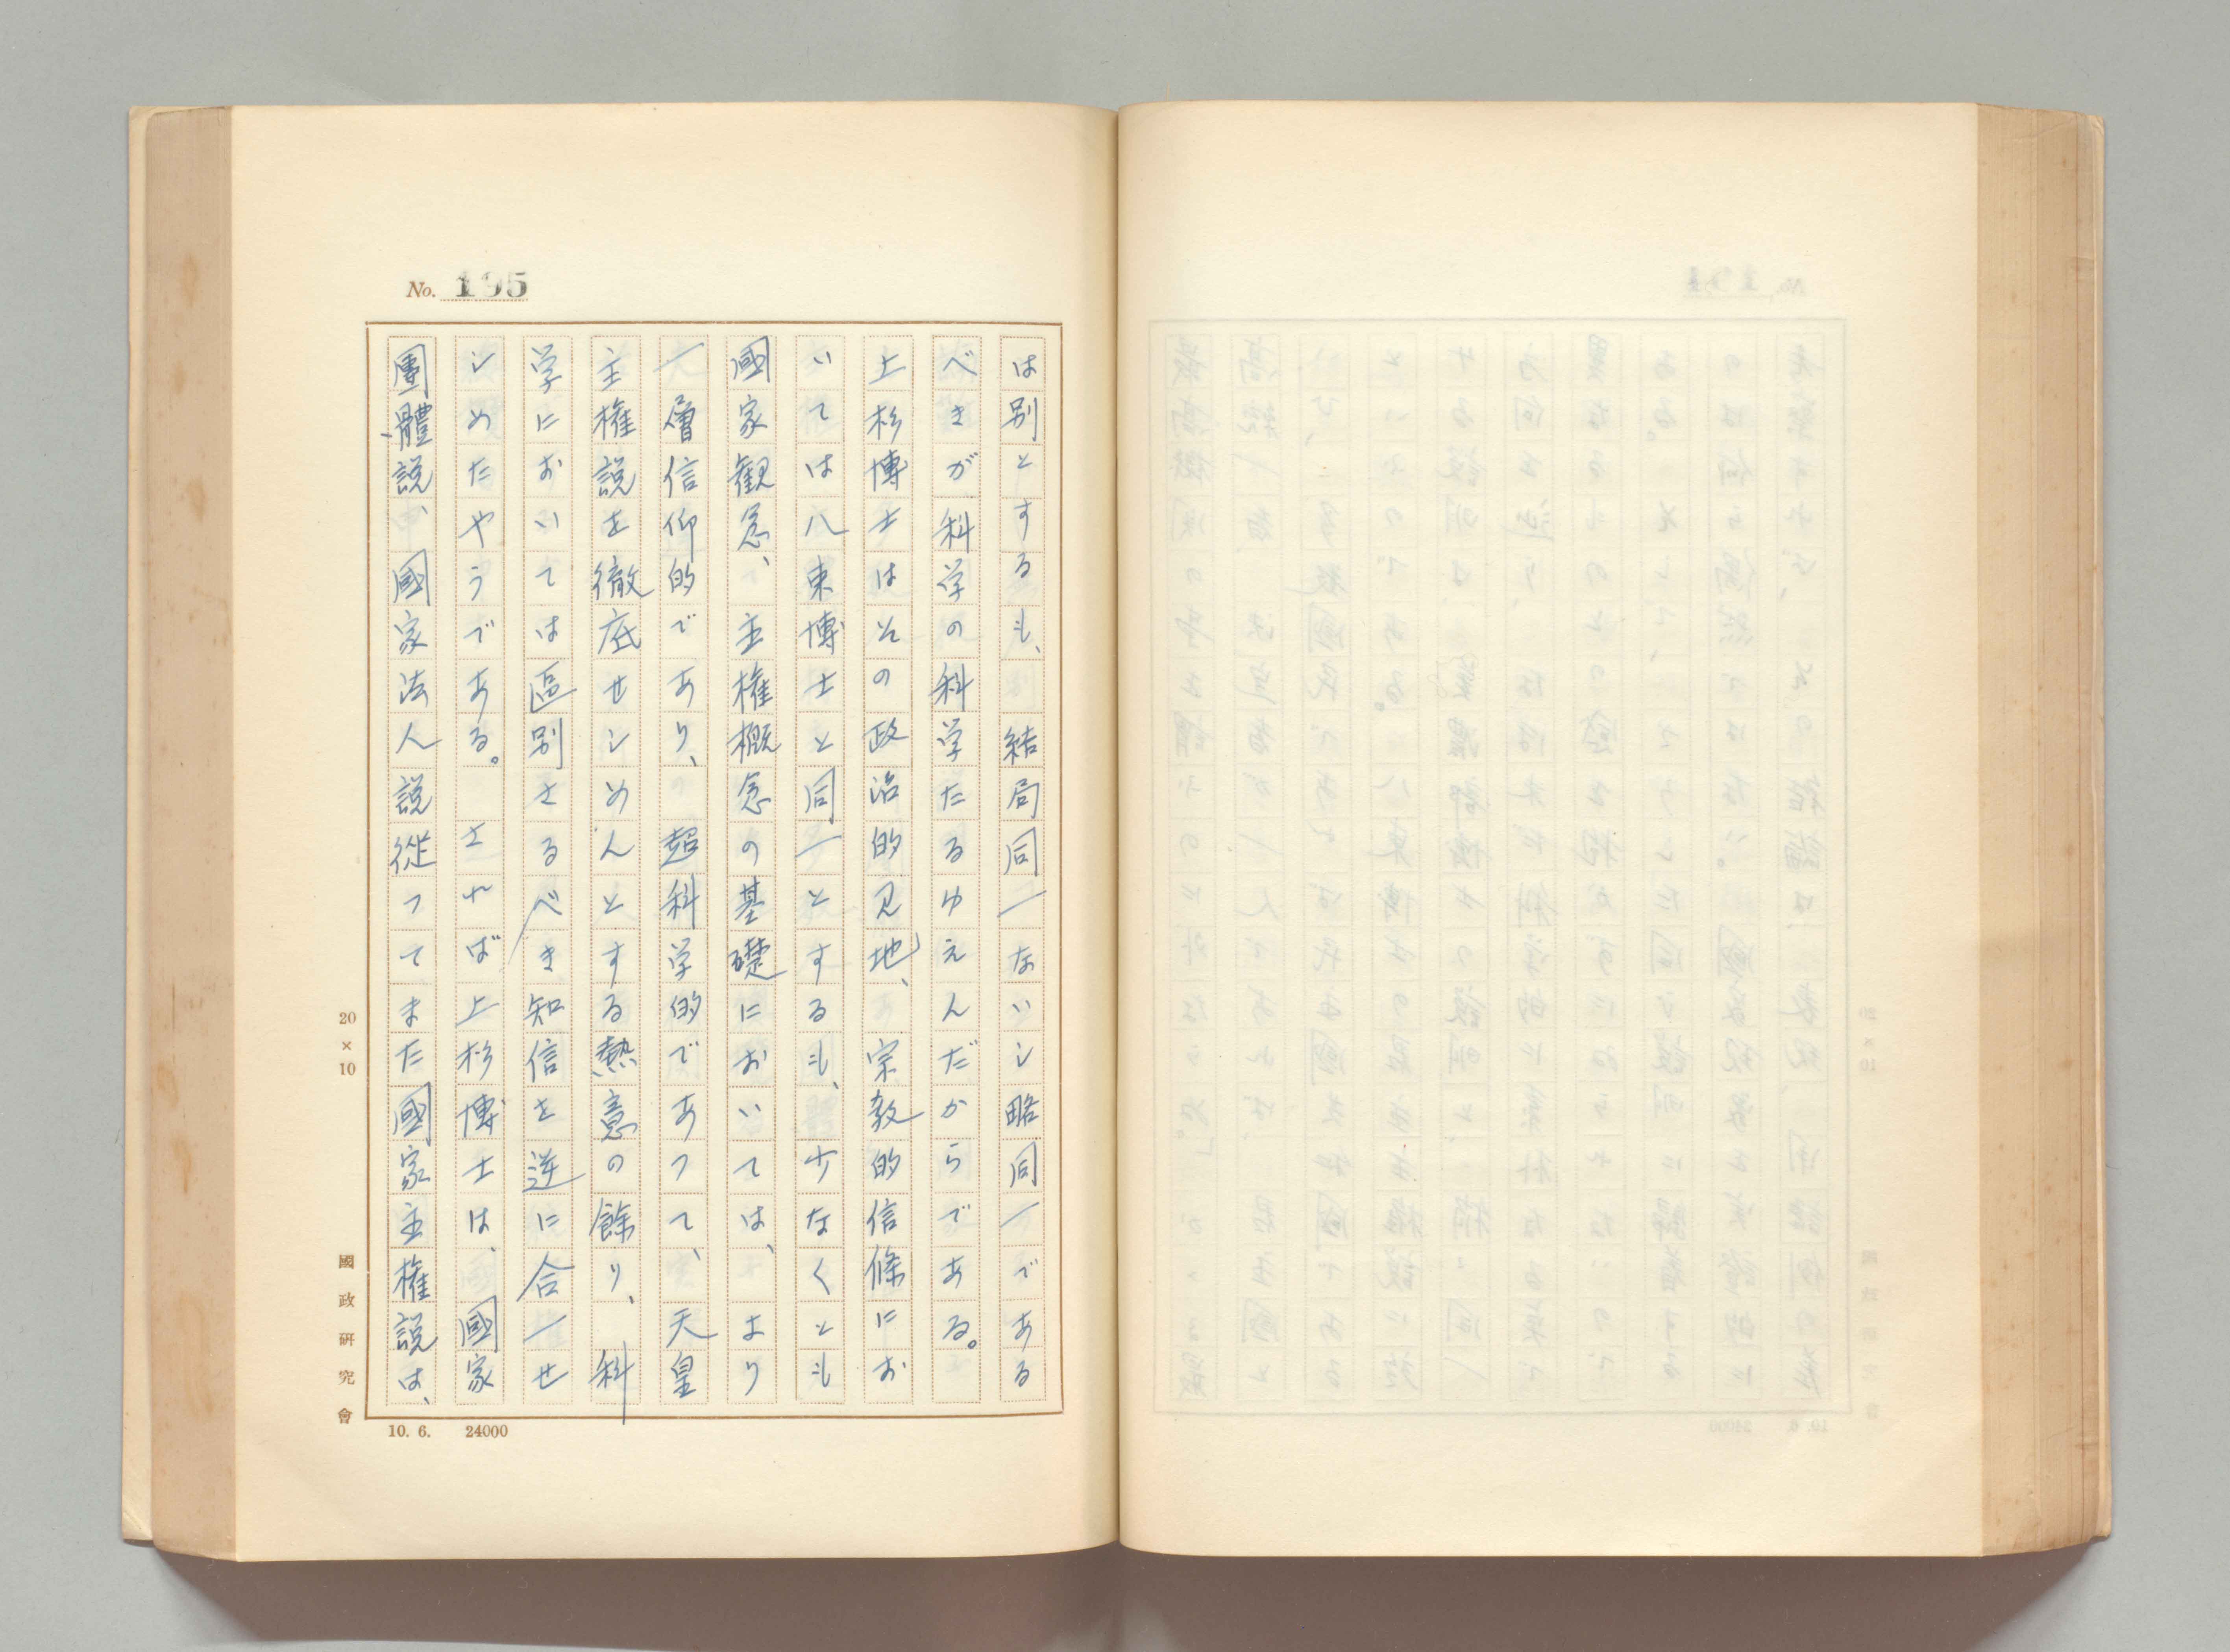 No. 195
は別とするも、結局同一ないし略同一である
べきが科学の科学たるゆえんだからである。
上杉博士はその政治的見地、宗教的信條にお
いては八束博士と同一とするも、少なくとも
國家観念、主権概念の基礎においては、より
一層信仰的であり、超科学的であつて、天皇
主権説を徹底せしめんとする熱意の餘り、科
学においては區別さるべき知信を逆に合一せ
しめたやうである。されば上杉博士は、國家
團體説、國家法人説従つてまた國家主権説は、
20×10
國政研究會
10. 6. 24000